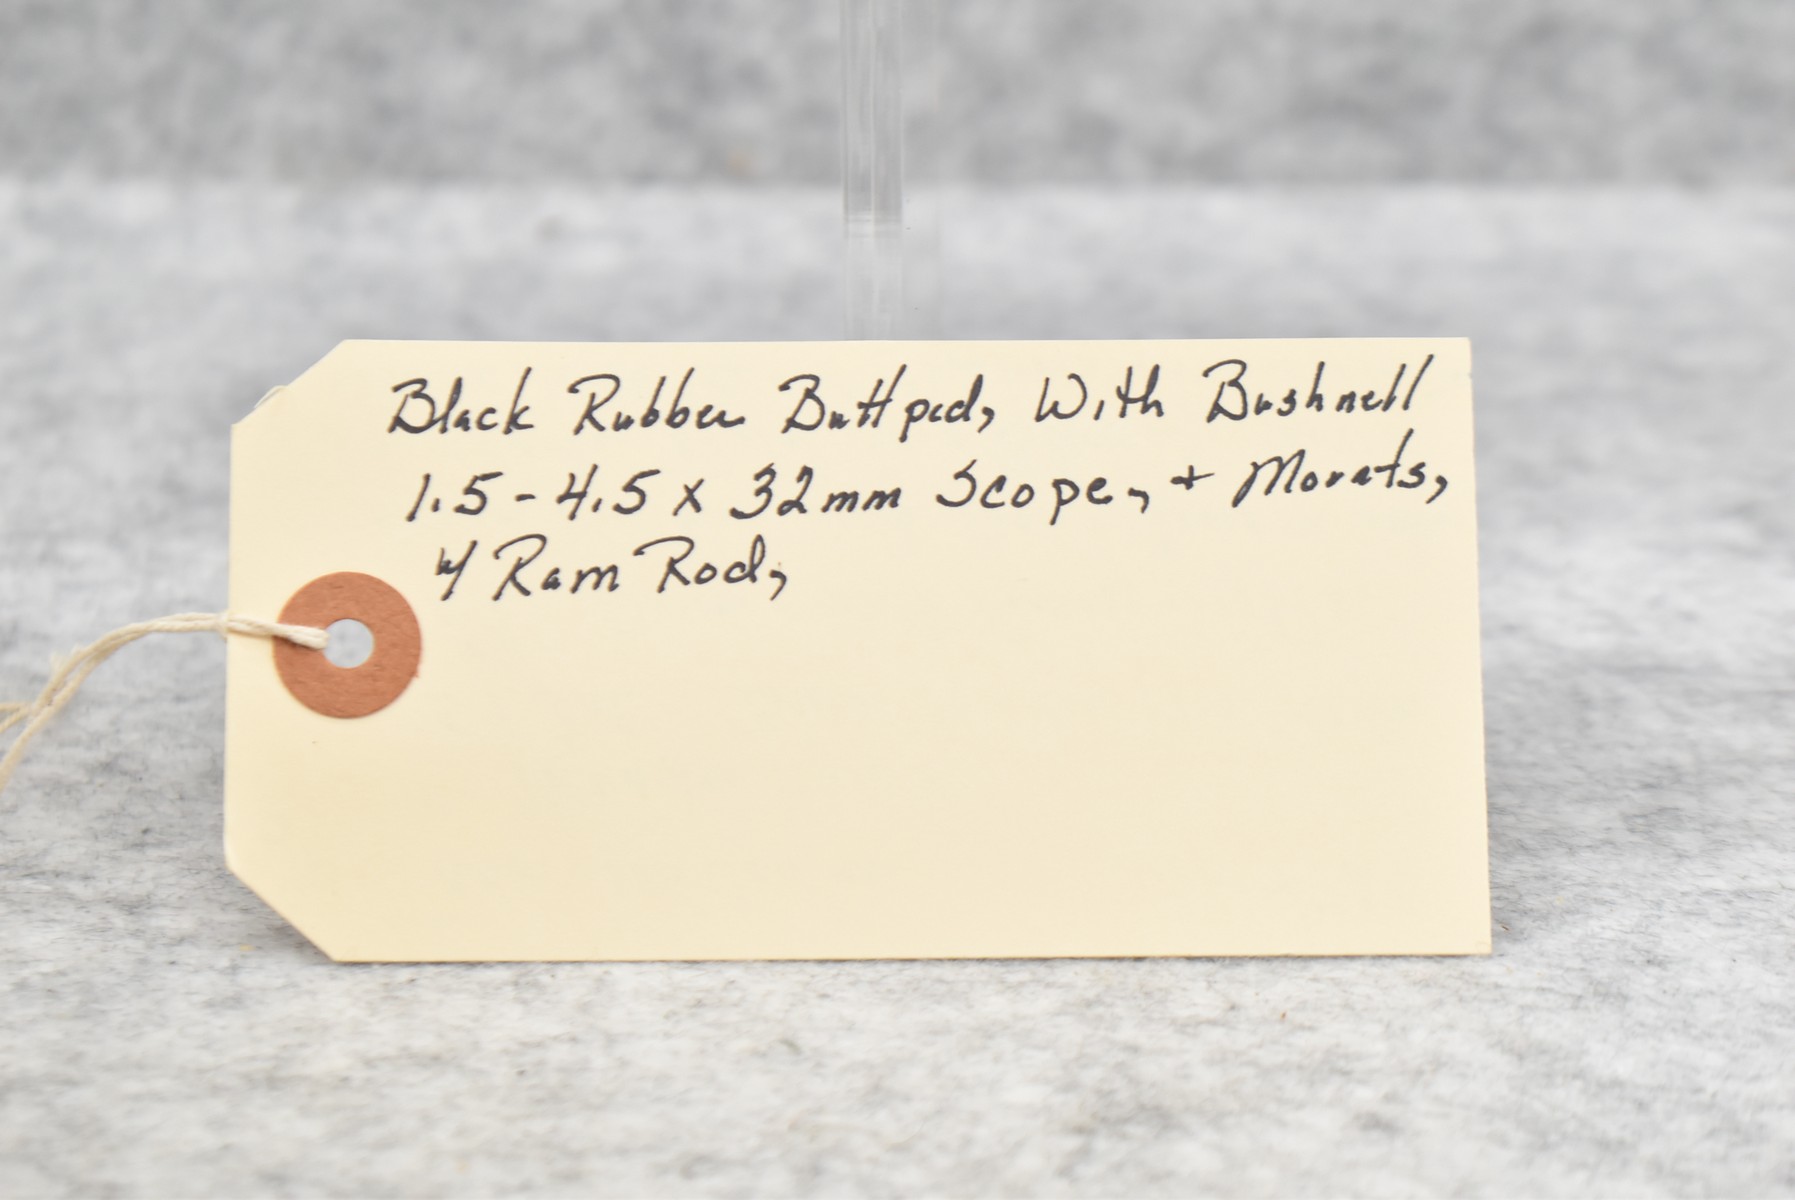 Black Rubber Buttpad, With Bushnell
1.5-4.5 x 32mm Scope, + Monats,
w/ Ram Rod,